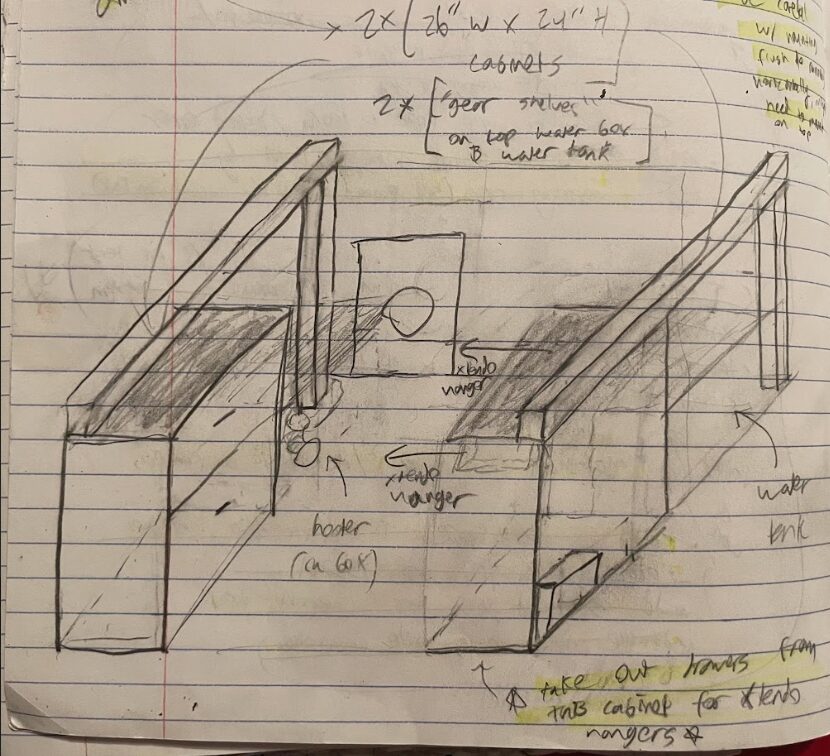 2x (26" W x 24" H
cabinets
2x ["gear shelves"
on top water box
B water tank]
w/ mounting
flush to
horizontally
need to
on top
xtendo
hanger
xtendo
hanger
heater
water
tank
* take out drawers from
this cabinet for xtendo
hangers *